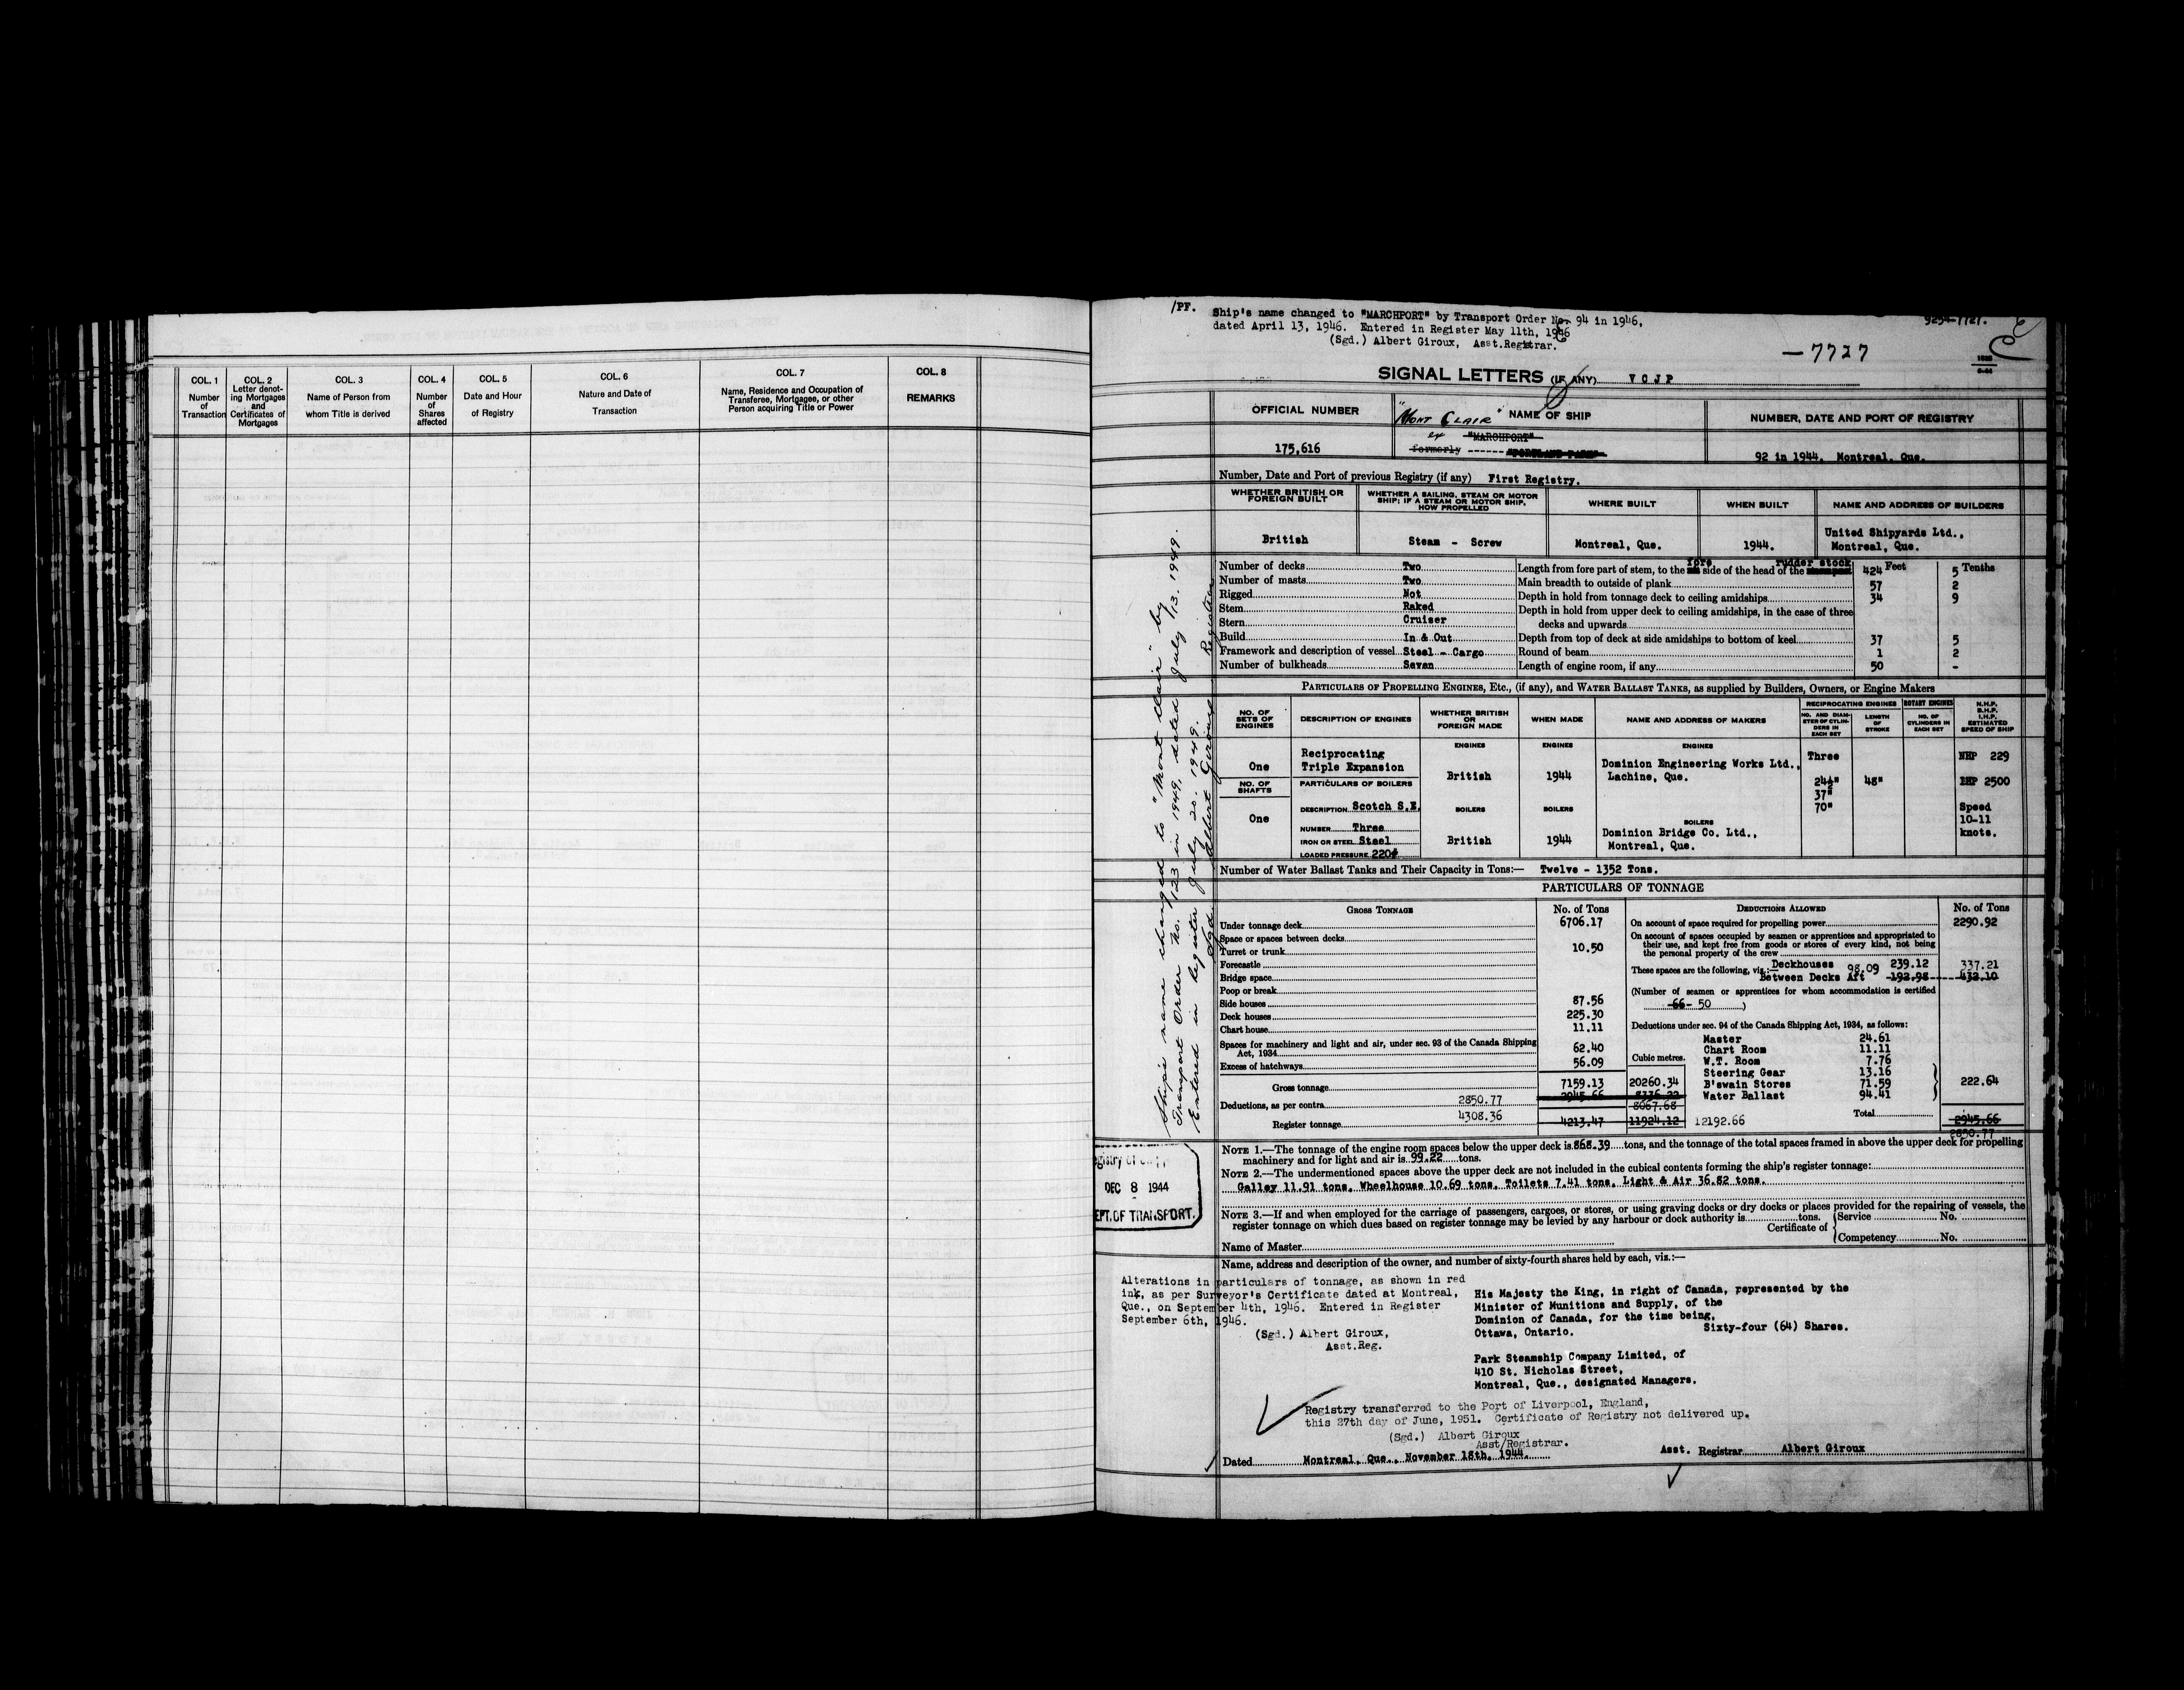 COL. 1
Number
of
Transaction
COL. 2
Letter denot-
ing Mortgages
and
Certificates of
Mortgages
COL. 3
Name of Person from
whom Title is derived
COL. 4
Number
of
Shares
affected
COL. 5
Date and Hour
of Registry
COL. 6
Nature and Date of
Transaction
COL. 7
Name, Residence and Occupation of
Transferee, Mortgagee, or other
Person acquiring Title or Power
COL. 8
REMARKS
/PF.
Ship's name changed to "MARCHPORT" by Transport Order No. 94 in 1946,
dated April 13, 1946. Entered in Register May 11th, 1946
(Sgd.) Albert Giroux, Asst.Registrar.
-7727
SIGNAL LETTERS (IF ANY) V C J P
OFFICIAL NUMBER
175,616
NAME OF SHIP
"Mont Clair"
ex "MARCHPORT"
formerly
NUMBER, DATE AND PORT OF REGISTRY
92 in 1944. Montreal, Que.
Number, Date and Port of previous Registry (if any) First Registry.
WHETHER BRITISH OR
FOREIGN BUILT
British
WHETHER A SAILING, STEAM OR MOTOR
SHIP; IF A STEAM OR MOTOR SHIP,
HOW PROPELLED
Steam - Screw
WHERE BUILT
Montreal, Que.
WHEN BUILT
1944.
NAME AND ADDRESS OF BUILDERS
United Shipyards Ltd.,
Montreal, Que.
Number of decks Two
Number of masts Two
Rigged Not
Stem Raked
Stern Cruiser
Build In & Out
Framework and description of vessel Steel - Cargo
Number of bulkheads Seven
Feet Tenths
Length from fore part of stem, to the fore side of the head of the rudder stock 424 5
Main breadth to outside of plank 57 2
Depth in hold from tonnage deck to ceiling amidships 34 9
Depth in hold from upper deck to ceiling amidships, in the case of three
decks and upwards
Depth from top of deck at side amidships to bottom of keel 37 5
Round of beam 1 2
Length of engine room, if any 50 -
PARTICULARS OF PROPELLING ENGINES, ETC., (if any), and WATER BALLAST TANKS, as supplied by Builders, Owners, or Engine Makers
NO. OF
SETS OF
ENGINES
One
NO. OF
SHAFTS
One
DESCRIPTION OF ENGINES
Reciprocating
Triple Expansion
PARTICULARS OF BOILERS
DESCRIPTION Scotch S.E.
NUMBER Three
IRON OR STEEL Steel
LOADED PRESSURE 220#
WHETHER BRITISH
OR
FOREIGN MADE
ENGINES
British
BOILERS
British
WHEN MADE
ENGINES
1944
BOILERS
1944
NAME AND ADDRESS OF MAKERS
ENGINES
Dominion Engineering Works Ltd.,
Lachine, Que.
BOILERS
Dominion Bridge Co. Ltd.,
Montreal, Que.
RECIPROCATING ENGINES
NO. AND DIAM-
ETER OF CYLIN-
DERS IN
EACH SET
Three
24½"
37"
70"
LENGTH
OF
STROKE
48"
ROTARY ENGINES
NO. OF
CYLINDERS IN
EACH SET
N.H.P.
B.H.P.
I.H.P.
ESTIMATED
SPEED OF SHIP
NHP 229
2500
Speed
10-11
knots.
Number of Water Ballast Tanks and Their Capacity in Tons:— Twelve - 1352 Tons.
PARTICULARS OF TONNAGE
GROSS TONNAGE No. of Tons
Under tonnage deck 6706.17
Space or spaces between decks
Turret or trunk 10.50
Forecastle
Bridge space
Poop or break
Side houses 87.56
Deck houses 225.30
Chart house 11.11
Spaces for machinery and light and air, under sec. 93 of the Canada Shipping
Act, 1934 62.40
Excess of hatchways 56.09
Cubic metres.
Gross tonnage 7159.13 20260.34
Deductions, as per contra 2850.77 2945.66 8336.22
8067.68
Register tonnage 4308.36 4213.47 11924.12 12192.66
DEDUCTIONS ALLOWED No. of Tons
On account of space required for propelling power 2290.92
On account of spaces occupied by seamen or apprentices and appropriated to
their use, and kept free from goods or stores of every kind, not being
the personal property of the crew
These spaces are the following, viz.:— Deckhouses 239.12 337.21
Between Decks Aft 98.09 192.98 432.10
(Number of seamen or apprentices for whom accommodation is certified
66 - 50 )
Deductions under sec. 94 of the Canada Shipping Act, 1934, as follows:
Master 24.61
Chart Room 11.11
W.T. Room 7.76
Steering Gear 13.16
B'swain Stores 71.59 222.64
Water Ballast 94.41
Total 2945.66
2850.77
NOTE 1.—The tonnage of the engine room spaces below the upper deck is 868.39 tons, and the tonnage of the total spaces framed in above the upper deck for propelling
machinery and for light and air is 99.22 tons.
NOTE 2.—The undermentioned spaces above the upper deck are not included in the cubical contents forming the ship's register tonnage:
Galley 11.91 tons, Wheelhouse 10.69 tons, Toilets 7.41 tons, Light & Air 36.82 tons.
NOTE 3.—If and when employed for the carriage of passengers, cargoes, or stores, or using graving docks or dry docks or places provided for the repairing of vessels, the
register tonnage on which dues based on register tonnage may be levied by any harbour or dock authority is tons.
Certificate of {Service No.
Competency No.
Name of Master
Name, address and description of the owner, and number of sixty-fourth shares held by each, viz.:—
His Majesty the King, in right of Canada, represented by the
Minister of Munitions and Supply, of the
Dominion of Canada, for the time being,
Ottawa, Ontario. Sixty-four (64) Shares.
Park Steamship Company Limited, of
410 St. Nicholas Street,
Montreal, Que., designated Managers.
Alterations in particulars of tonnage, as shown in red
ink, as per Surveyor's Certificate dated at Montreal,
Que., on September 4th, 1946. Entered in Register
September 6th, 1946.
(Sgd.) Albert Giroux,
Asst.Reg.
Registry transferred to the Port of Liverpool, England,
this 27th day of June, 1951. Certificate of Registry not delivered up.
(Sgd.) Albert Giroux
Asst/Registrar.
Dated Montreal, Que., November 18th, 1944.
Asst. Registrar Albert Giroux
DEC 8 1944
EPT. OF TRANSPORT.
Ship's name changed to "Mont Clair" by
Transport Order No. 123 in 1949, dated July 13. 1949.
Entered in Register July 20. 1949.
Sgd. Albert Giroux Registrar